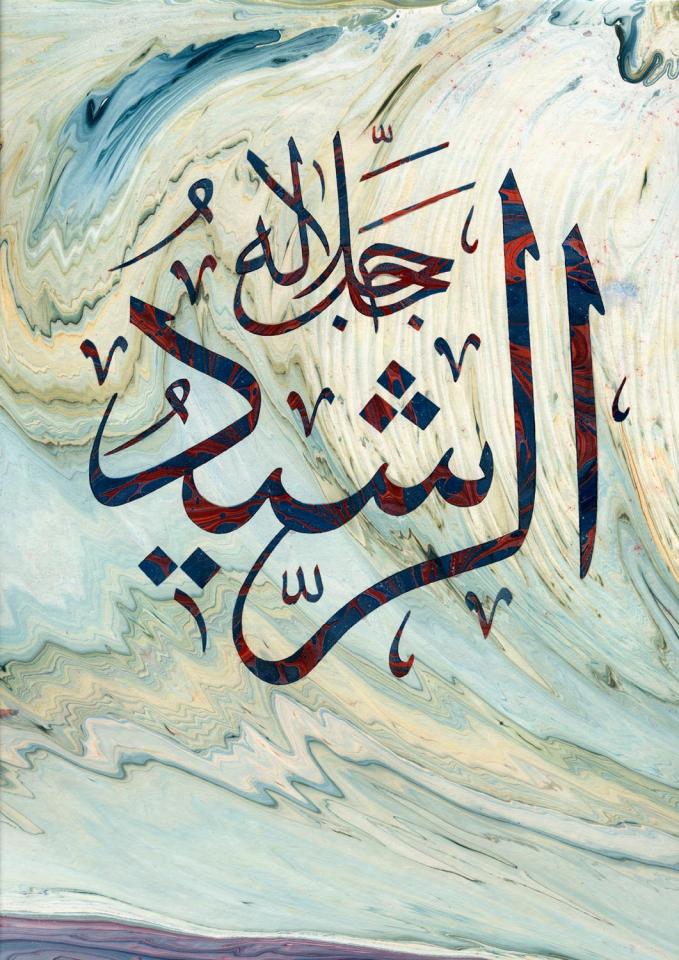 الرَّشِيدُ
جَلَّ جَلَالُهُ